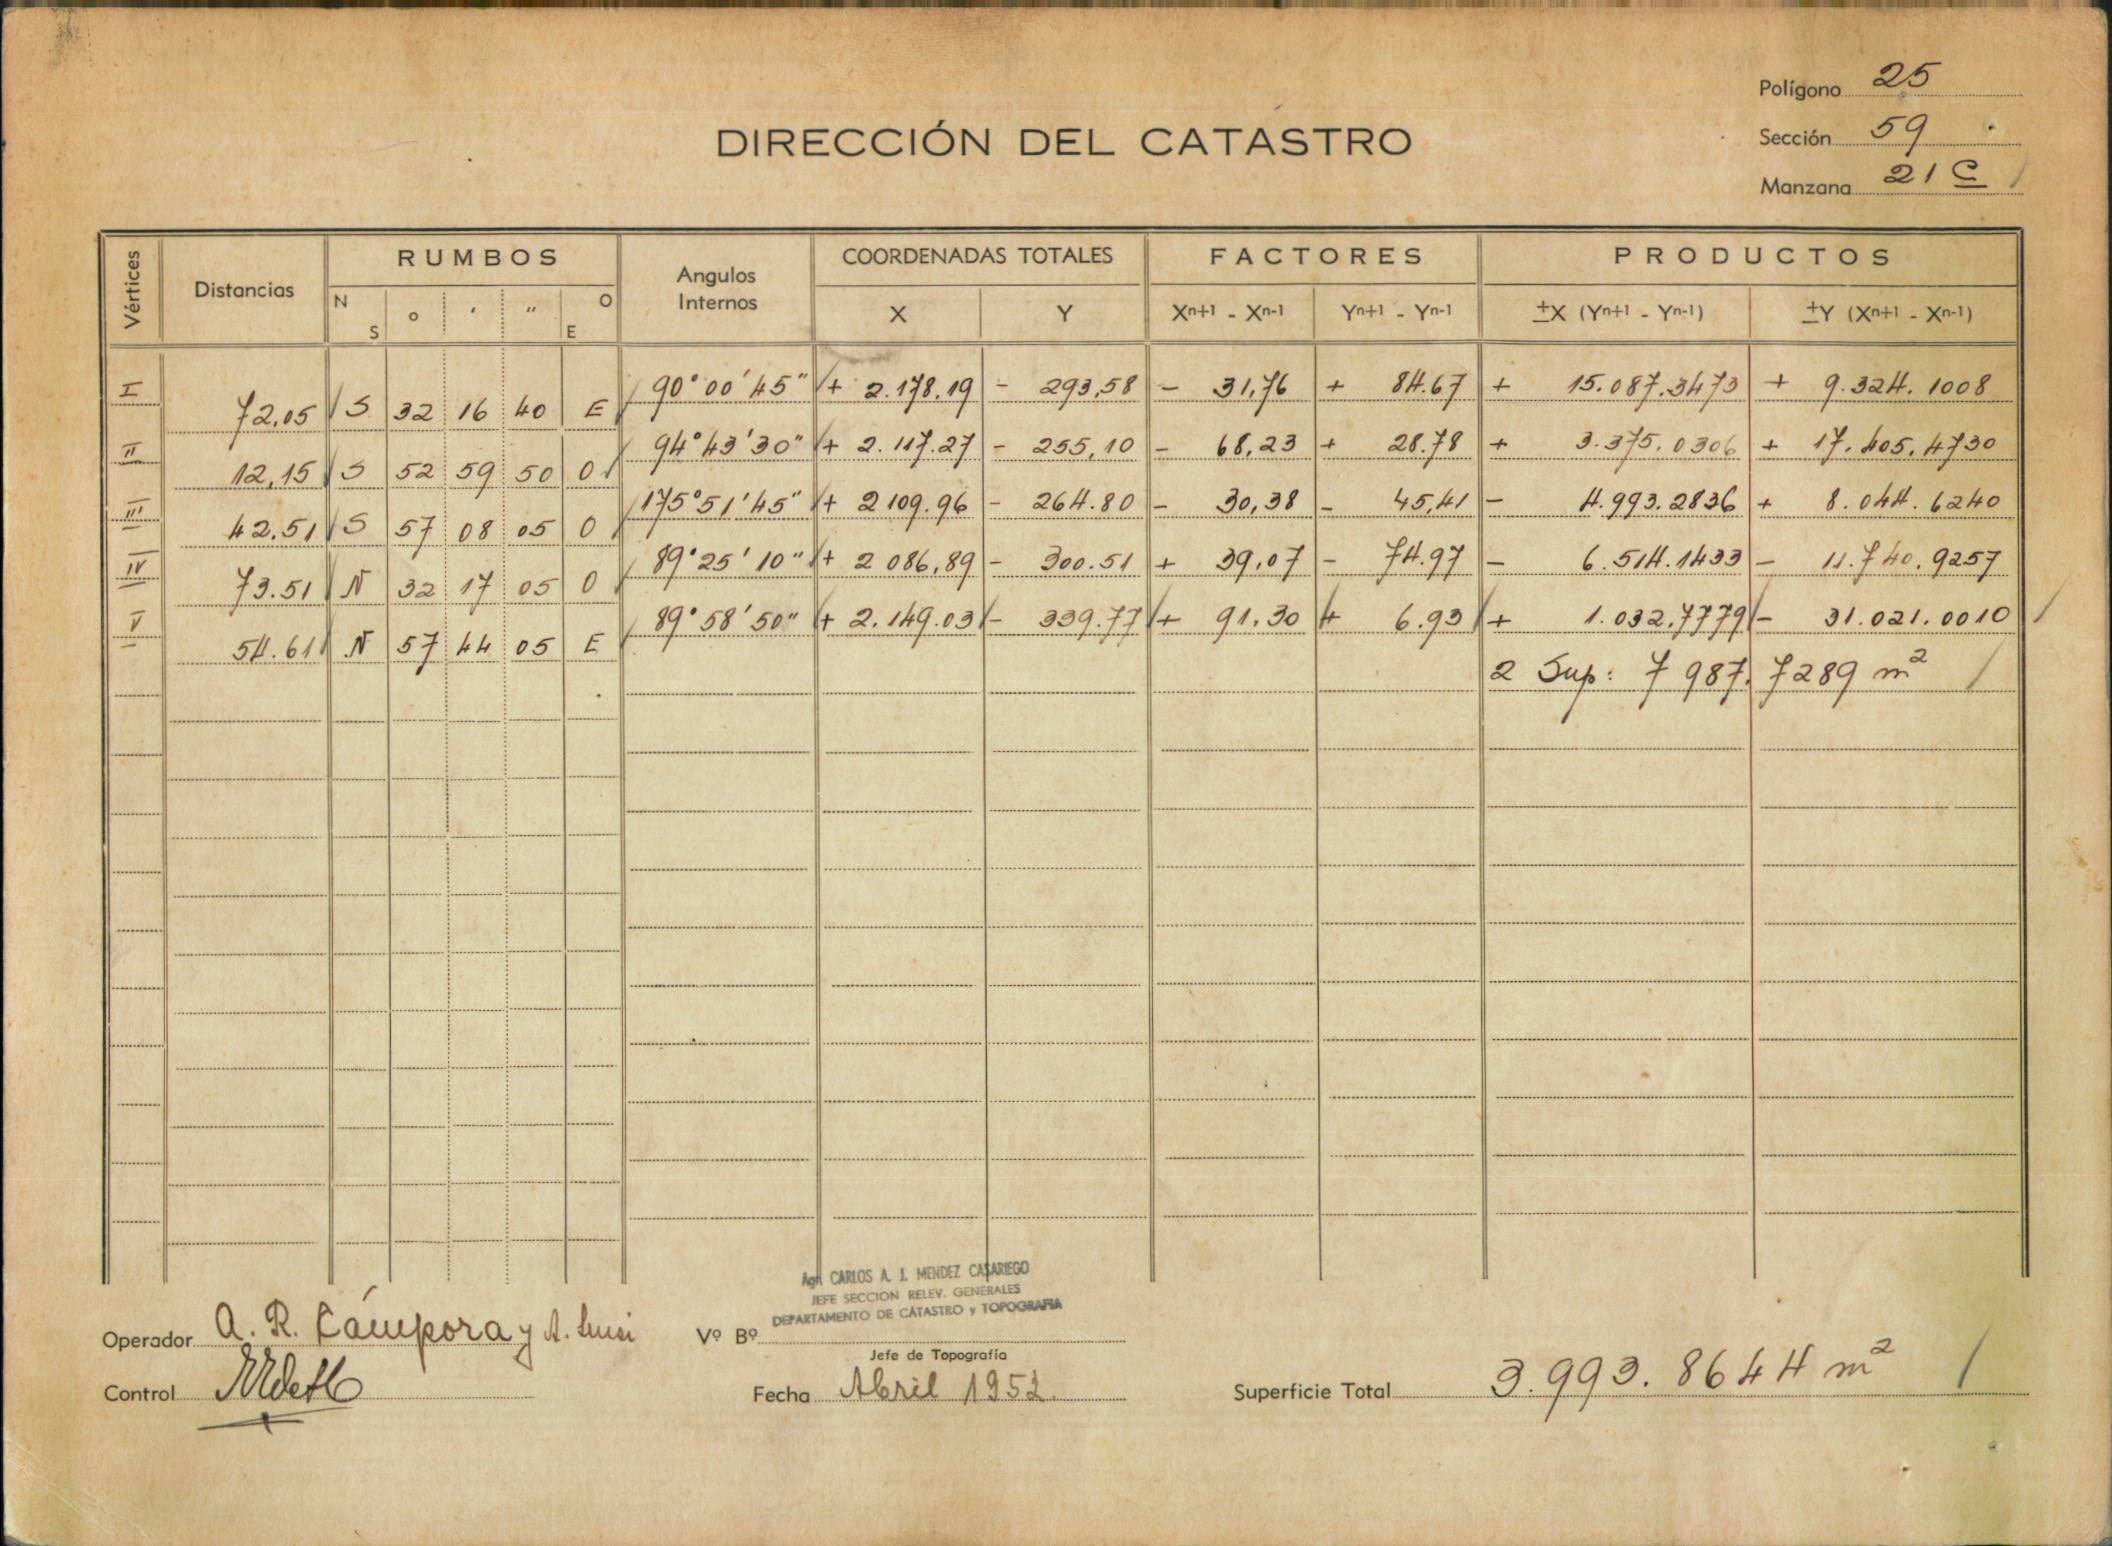 Polígono 25
DIRECCIÓN DEL CATASTRO
Sección 59
Manzana 21 C
Vértices
Distancias
RUMBOS
N S ° ' " O E
Angulos Internos
COORDENADAS TOTALES
X Y
FACTORES
Xn+1 - Xn-1 Yn+1 - Yn-1
PRODUCTOS
±X (Yn+1 - Yn-1) ±Y (Xn+1 - Xn-1)
I 90° 00' 45" + 2.178.19 - 293,58 - 31,76 + 84.67 + 15.087.3473 + 9.324.1008
72,05 S 32 16 40 E
II 94° 43' 30" + 2.117.27 - 255,10 - 68,23 + 28.78 + 3.375.0306 + 17.405.4730
12,15 S 52 59 50 O
III 175° 51' 45" + 2109.96 - 264.80 - 30,38 - 45,41 - 4.993.2836 + 8.044.6240
42.51 S 57 08 05 O
IV 89° 25' 10" + 2 086,89 - 300.51 + 39,07 - 74.97 - 6.514.1433 - 11.740.9257
73.51 N 32 17 05 O
V 89° 58' 50" + 2.149.03 - 339.77 + 91.30 + 6.93 + 1.032.7779 - 31.021.0010
54.61 N 57 44 05 E
2 Sup: 7 987.7289 m²
Agr. CARLOS A. J. MENDEZ CASARIEGO
JEFE SECCION RELEV. GENERALES
DEPARTAMENTO DE CATASTRO y TOPOGRAFIA
Operador A. R. Cámpora y A.
Vº Bº
Jefe de Topografía
Control
Fecha Abril 1952.
Superficie Total 3.993.8644 m²